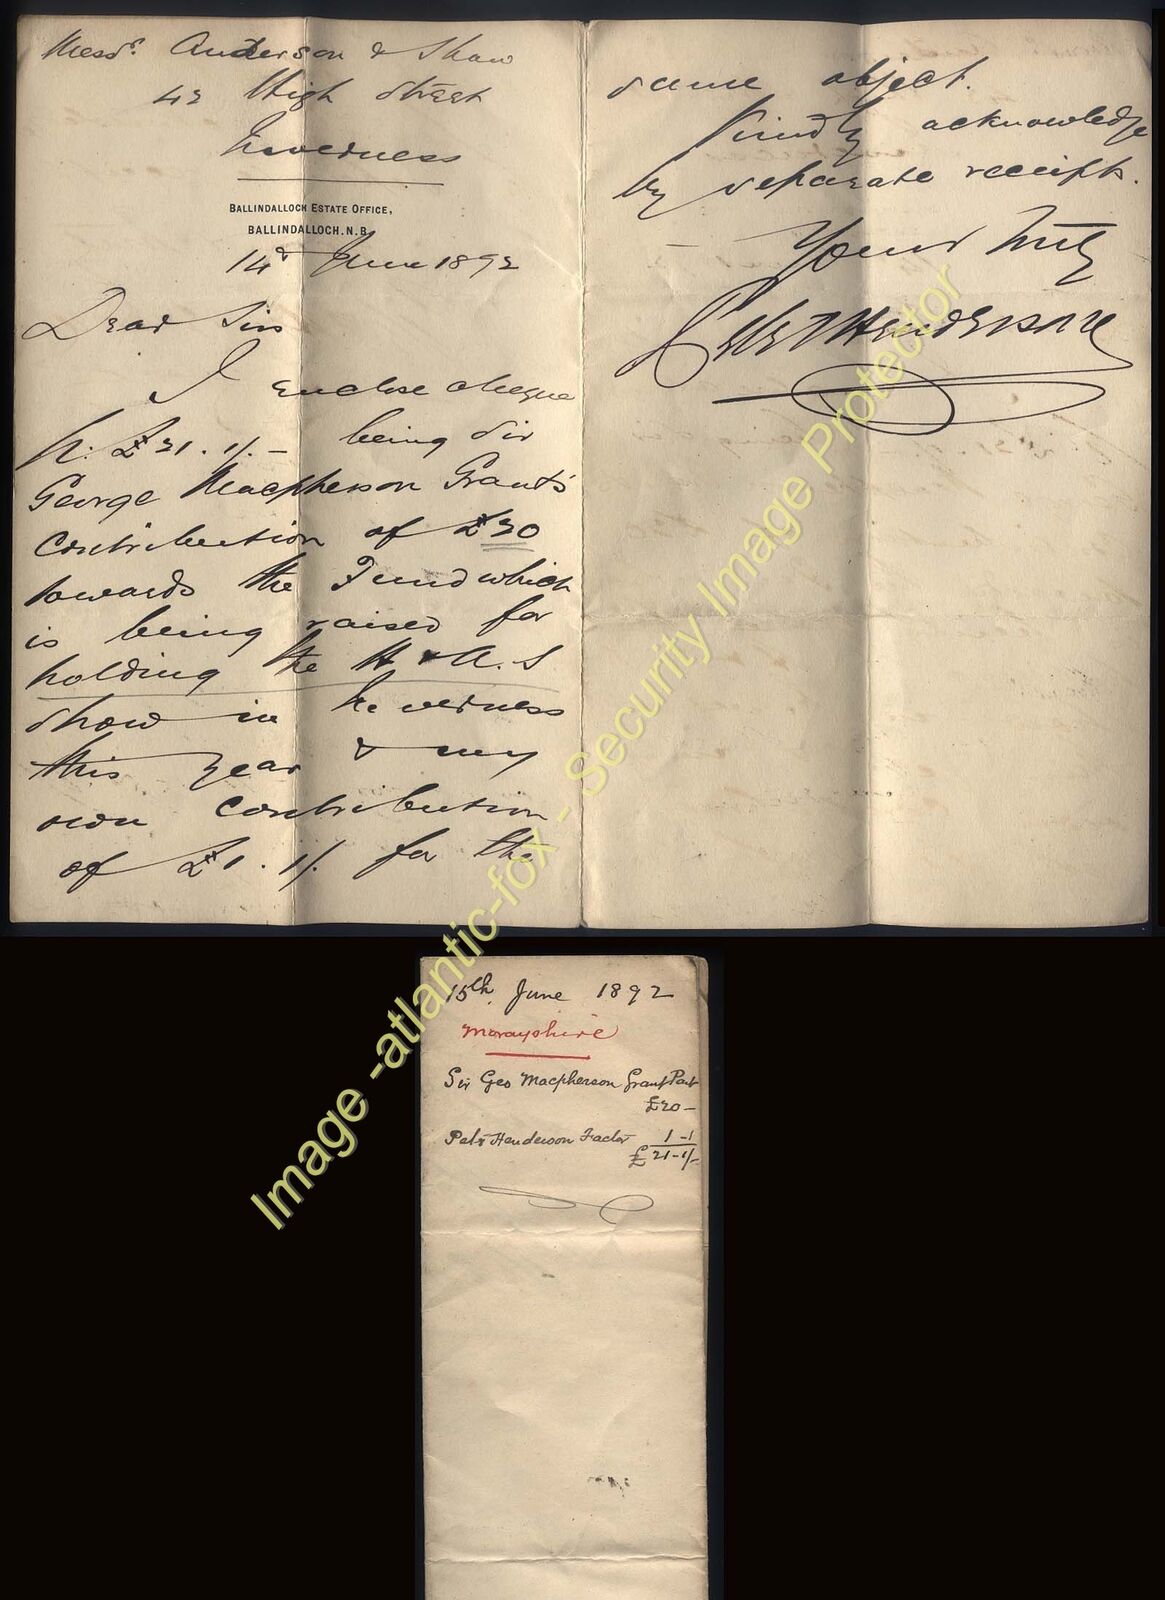 Messrs. Anderson & Shaw
42 High Street
Inverness
BALLINDALLOCH ESTATE OFFICE,
BALLINDALLOCH. N.B.
14 June 1892
Dear Sirs
I enclose cheque
£21.1/- being Sir
George Macpherson Grant's
contribution of £20
towards the Fund which
is being raised for
holding the H & A. S
Show in Inverness
this year & my
own contribution
of £1. 1/. for the
same object.
Kindly acknowledge
by separate receipts.
Yours truly
Peter Henderson
15th June 1892
Morayshire
Sir Geo Macpherson Grant Bart
£20-
Petr Henderson Factor 1-1
£21-1/-
Image -atlantic-fox - Security Image Protector